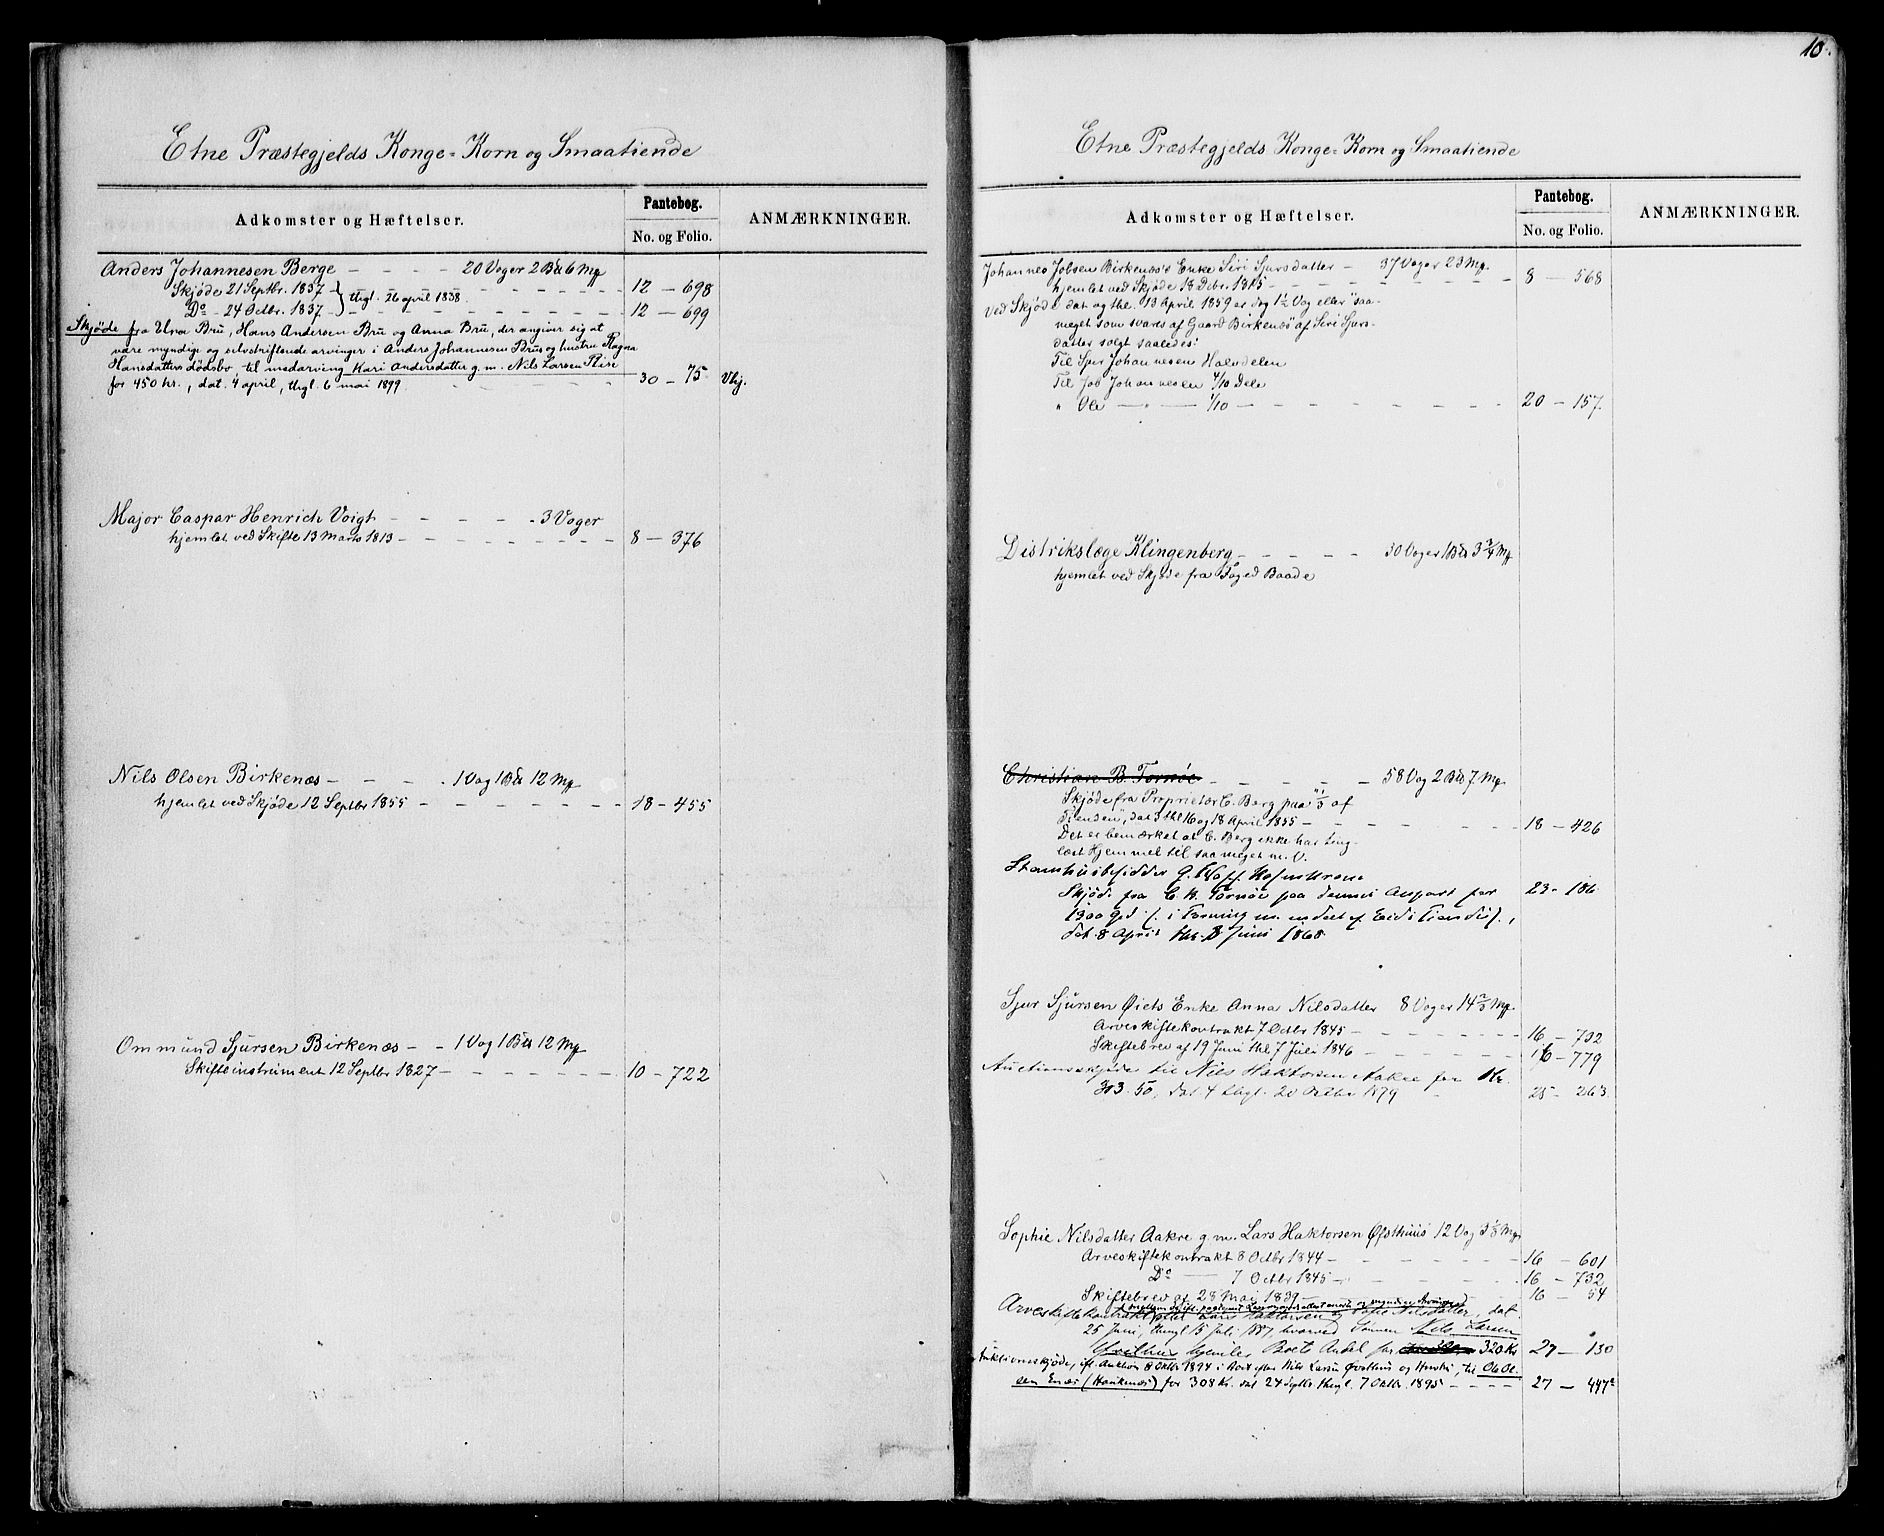 Etne Præstegjelds Konge-Korn og Smaatiende
Adkomster og Hæftelser.
Pantebog.
No. og Folio.
ANMÆRKNINGER.
Anders Johannesen Berge – – – – 20 Voger 2 Bd 6 Mp
Skjøde 21 Septbr. 1837 – } thgl. 26 april 1838 – – – 12 – 698
Do – 24 Octbr. 1837 – – – – 12 – 699
Skjøde fra Elva Bru, Hans Andersen Bru og Anna Bru, der angiver sig at
være myndige og selvdriftende arvinger i Anders Johannesen Brus og hustru Ragna
Hansdatters dødsbo til medarving Kari Andersdatter g.m. Nils Larsen
for 450 kr., dat. 4 april, thgl. 6 mai 1899 – – – 30 – 75 Vhj.
Major Caspar Henrich Voigt – – – – 3 Voger
hjemlet ved Skifte 13 Marts 1813 – – – – 8 – 376
Nils Olsen Birkenæs – – – – 1 Vog 1 Bd 12 Mp
hjemlet ved Skjøde 12 Septbr 1855 – – – – 18 – 455
Ommund Sjursen Birkenæs – – 1 Vog 1 Bd 12 Mp
Skifteinstrument 12 Septbr 1827 – – – – 10 – 722
10.
Etne Præstegjelds Konge-Korn og Smaatiende
Adkomster og Hæftelser.
Pantebog.
No. og Folio.
ANMÆRKNINGER.
Johannes Jobsen Birkenæs's Enke Siri Sjursdatter – 37 Voger 23 Mp.
hjemlet ved Skjøde 18 Debr. 1815 – – – – 8 – 568
Ved Skjøde dat og thl. 13 April 1859 er dog 1½ Vog eller "saa
meget som svares af Gaard Birkenæs" af Siri Sjurs-
datter solgt saaledes:
Til Sjur Johannesen Halvdelen
Til Job Johannesen 4/10 Dele
" Ole – " – 1/10 – – – – 20 – 157.
Distrikslæge Klingenberg – – – – 30 Voger 1 Bd 3 3/4 Mp
hjemlet ved Skjøde fra Foged Baade
Christian B. Tornøe – – – – 58 Vog 2 Bd 7 Mp.
Skjøde fra Proprietær C. Berg paa "1/3 af
Tienden", dat & thl 16 og 18 April 1855 – – – – 18 – 426
Det er bemærket at C. Berg ikke har ting-
læst Hjemmel til saa meget m. V.
Stamhusbesidder
Skjøde fra C. B. Tornøe paa denne Anpart for
1300 Spd i Forening m. endeel af Eid i Tiendes., 23 – 186
dat. 8 April thl. Juni 1868.
Sjur Sjursen Øiets Enke Anna Nilsdatter 8 Voger 14 2/3 Mp.
Arveskiftekontrakt 7 Octbr 1845 – – – – 16 – 732
Skiftebrev af 19 Juni thl 7 Juli 1846 – – – – 16 – 779
Auctionsskjøde til Nils Haktorsen Aakre for Kr.
303.50, dat. 4 thgl. 20 Octbr 1879 – 25 – 263
Sophie Nilsdatter Aakre g.m. Lars Haktorsen Øfsthuus 12 Vog 3 1/3 Mp.
Arveskiftekontrakt 8 Octbr 1844 – – – – 16 – 601
Do – 7 Octbr 1845 – – – – 16 – 732
Skiftebrev af 28 Mai 1839 – – – – 16 – 54
Arveskiftekontrakt efter Lars Haktorsen og Sofie Nilsdatter, dat.
25 Juni, thngl 15 Juli 1887, hvorved Sønnen Nils Larsen
hjemles Boets Andel for 320 Kr 27 – 130
Auktionsskjøde, ifl. Auktion 8 Oktbr 1894 i Boet efter Nils Larsen Øvsthus og Hustru, til Ole Ol-
sen Enæs (Haukenæs) for 308 Kr. dat 24 Septbr. thngl. 7 Oktbr. 1895 – – – 27 – 447